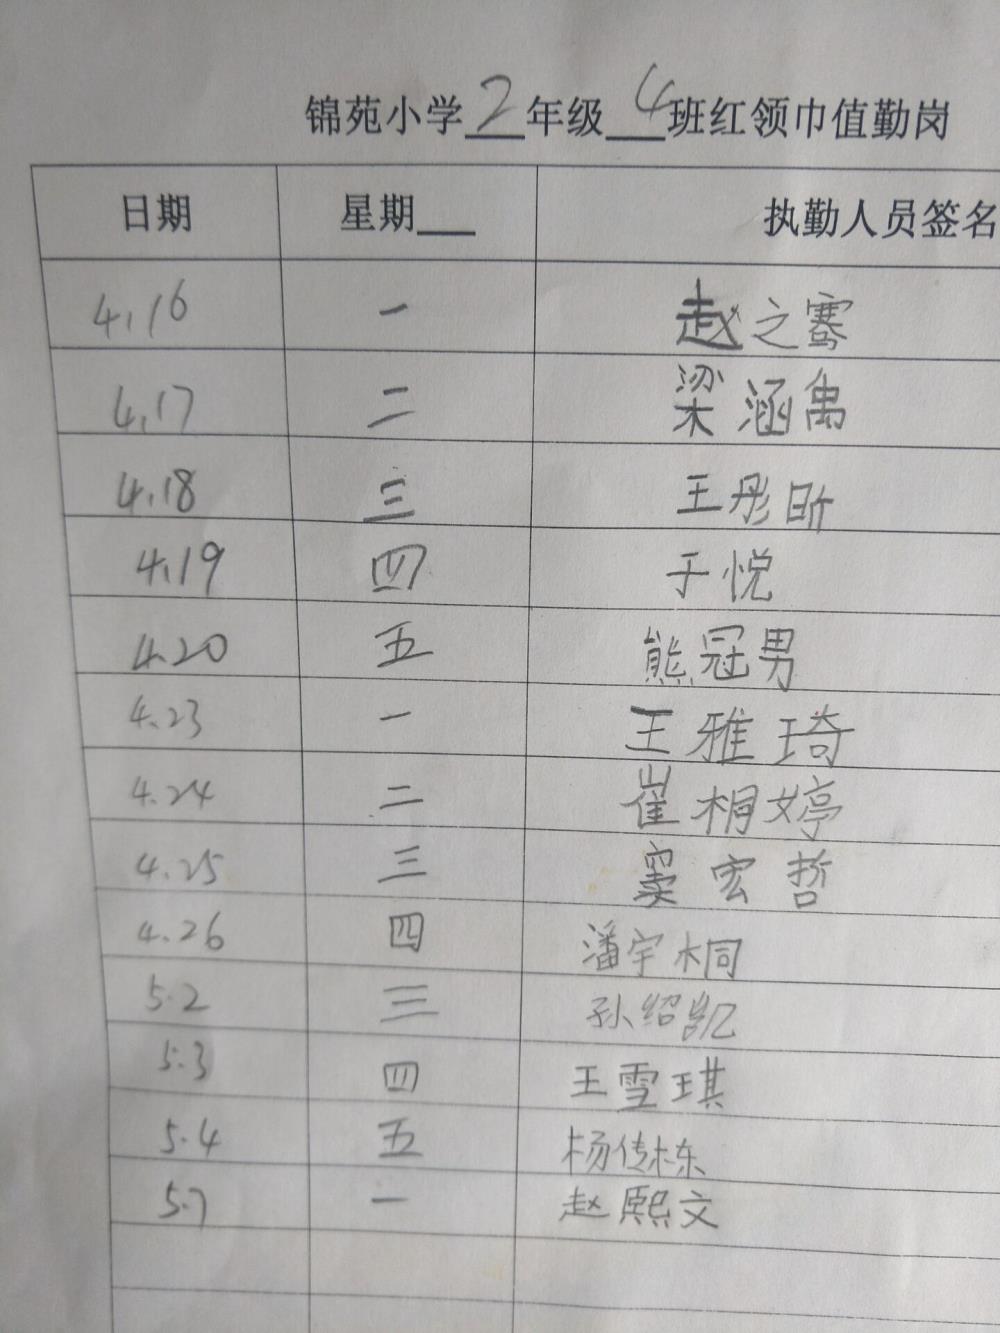 锦苑小学2年级4班红领巾值勤岗
日期 星期___ 执勤人员签名
4.16 一 赵之骞
4.17 二 梁涵禹
4.18 三 王彤昕
4.19 四 于悦
4.20 五 熊冠男
4.23 一 王雅琦
4.24 二 崔桐婷
4.25 三 窦宏哲
4.26 四 潘宇桐
5.2 三 孙绍凯
5.3 四 王雪琪
5.4 五 杨传栋
5.7 一 赵熙文